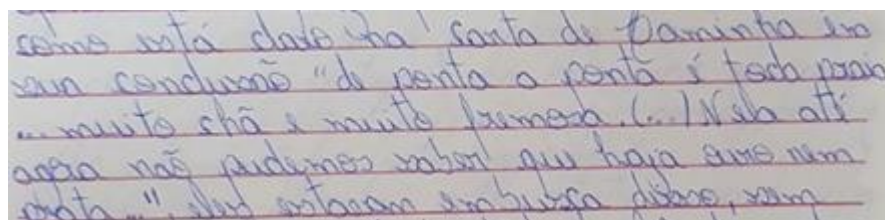 como está claro na carta de Caminha em
sua conclusão "de ponta a ponta é toda praia
... muito chã e muito fremosa. (...) Nela até
agora não pudemos saber que haja ouro nem
prata..." eles estavam em busca disso, sem